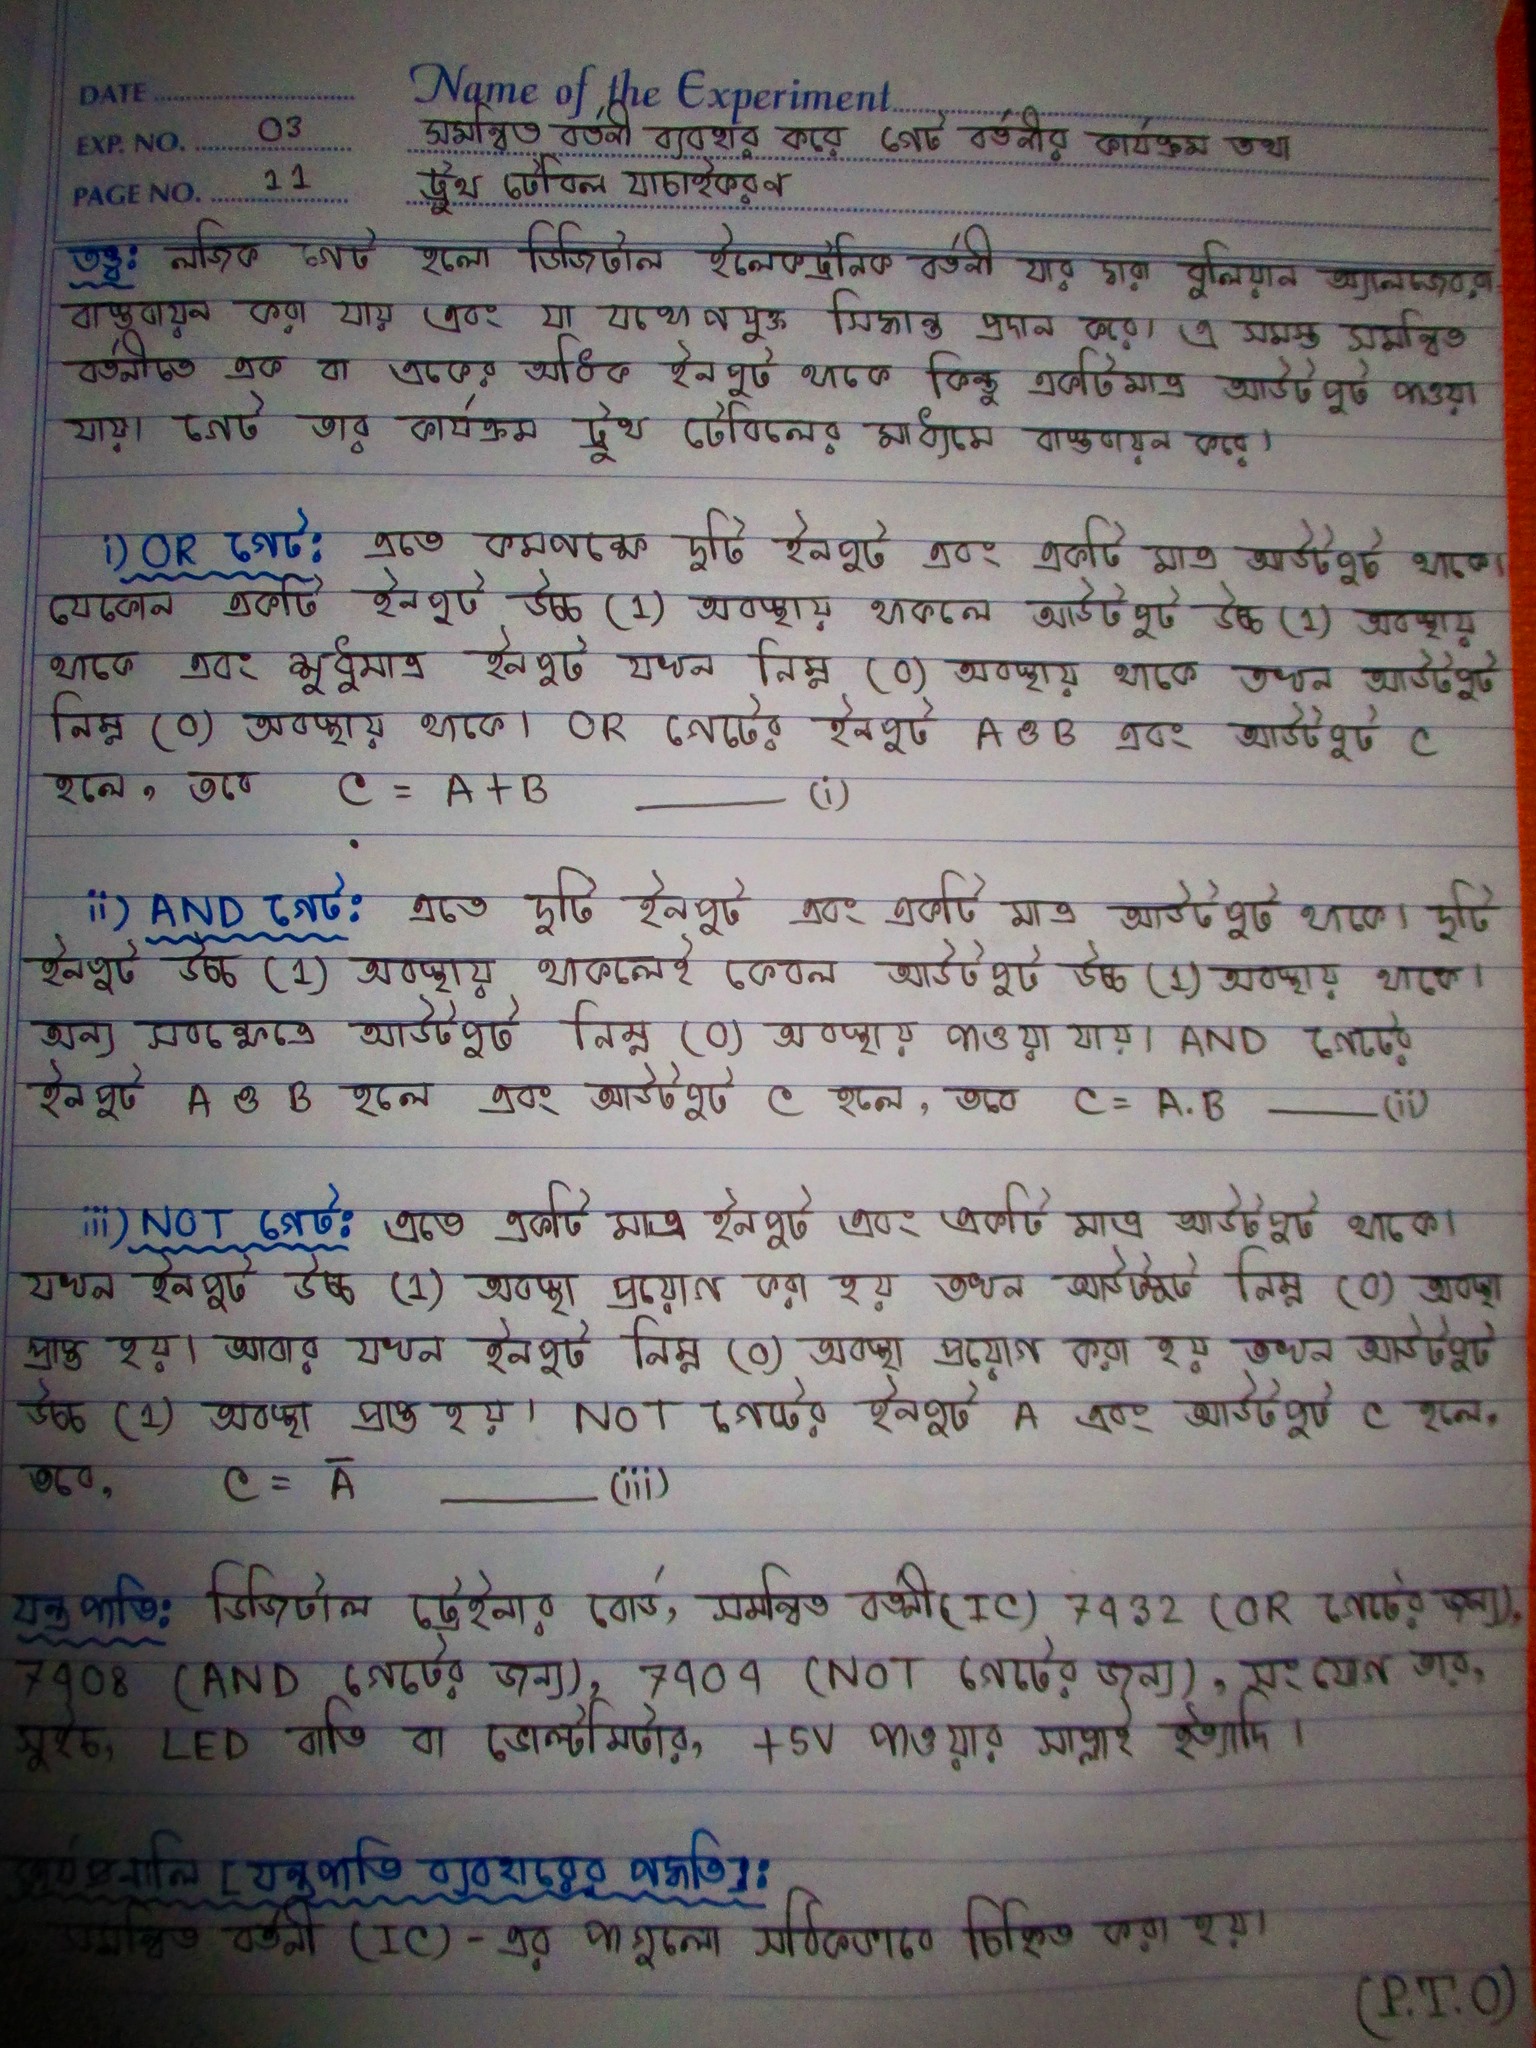 DATE
Name of the Experiment
EXP. NO. 03
সমন্বিত বর্তনী ব্যবহার করে গেট বর্তনীর কার্যক্রম তথা
PAGE NO. 11
ট্রুথ টেবিল যাচাইকরণ
তত্ত্ব: লজিক গেট হলো ডিজিটাল ইলেকট্রনিক বর্তনী যার দ্বারা বুলিয়ান অ্যালজেবরা
বাস্তবায়ন করা যায় এবং যা যথোপযুক্ত সিদ্ধান্ত প্রদান করে। এ সমস্ত সমন্বিত
বর্তনীতে এক বা একের অধিক ইনপুট থাকে কিন্তু একটিমাত্র আউটপুট পাওয়া
যায়। গেট তার কার্যক্রম ট্রুথ টেবিলের মাধ্যমে বাস্তবায়ন করে।
i) OR গেট: এতে কমপক্ষে দুটি ইনপুট এবং একটি মাত্র আউটপুট থাকে।
যেকোন একটি ইনপুট উচ্চ (1) অবস্থায় থাকলে আউটপুট উচ্চ (1) অবস্থায়
থাকে এবং শুধুমাত্র ইনপুট যখন নিম্ন (0) অবস্থায় থাকে তখন আউটপুট
নিম্ন (0) অবস্থায় থাকে। OR গেটের ইনপুট A ও B এবং আউটপুট C
হলে, তবে C = A + B ——— (i)
ii) AND গেট: এতে দুটি ইনপুট এবং একটি মাত্র আউটপুট থাকে। দুটি
ইনপুট উচ্চ (1) অবস্থায় থাকলেই কেবল আউটপুট উচ্চ (1) অবস্থায় থাকে।
অন্য সবক্ষেত্রে আউটপুট নিম্ন (0) অবস্থায় পাওয়া যায়। AND গেটের
ইনপুট A ও B হলে এবং আউটপুট C হলে, তবে C = A.B ——— (ii)
iii) NOT গেট: এতে একটি মাত্র ইনপুট এবং একটি মাত্র আউটপুট থাকে।
যখন ইনপুট উচ্চ (1) অবস্থা প্রয়োগ করা হয় তখন আউটপুট নিম্ন (0) অবস্থা
প্রাপ্ত হয়। আবার যখন ইনপুট নিম্ন (0) অবস্থা প্রয়োগ করা হয় তখন আউটপুট
উচ্চ (1) অবস্থা প্রাপ্ত হয়। NOT গেটের ইনপুট A এবং আউটপুট C হলে,
তবে, C = Ā ——— (iii)
যন্ত্রপাতি: ডিজিটাল ট্রেইনার বোর্ড, সমন্বিত বর্তনী (IC) 7432 (OR গেটের জন্য),
7408 (AND গেটের জন্য), 7404 (NOT গেটের জন্য), সংযোগ তার,
সুইচ, LED বাতি বা ভোল্টমিটার, +5V পাওয়ার সাপ্লাই ইত্যাদি।
কার্যপ্রনালি [যন্ত্রপাতি ব্যবহারের পদ্ধতি]:
সমন্বিত বর্তনী (IC) - এর পাগুলো সঠিকভাবে চিহ্নিত করা হয়।
(P.T.O)